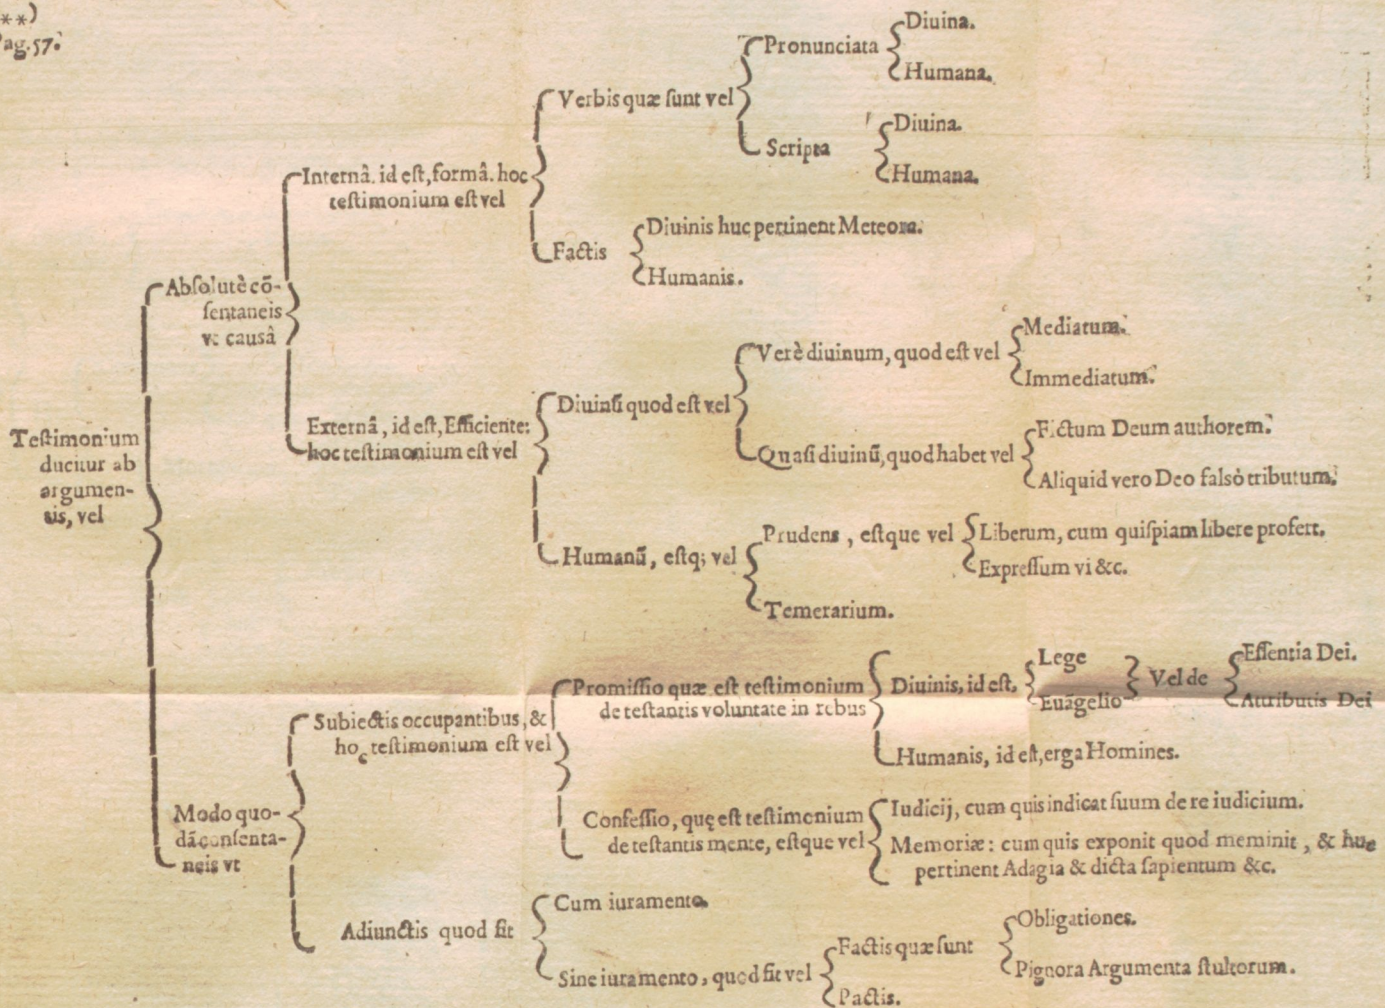 **)
Pag.57.
Testimonium
ducitur ab
argumen-
tis, vel
Absolutè cō-
sentaneis
vt causâ
Internâ. id est, formâ. hoc
testimonium est vel
Verbis quæ sunt vel
Pronunciata
Diuina.
Humana.
Scripta
Diuina.
Humana.
Factis
Diuinis huc pertinent Meteora.
Humanis.
Externâ, id est, Efficiente:
hoc testimonium est vel
Diuinū quod est vel
Verè diuinum, quod est vel
Mediatum.
Immediatum.
Quasi diuinū, quod habet vel
Fictum Deum authorem.
Aliquid vero Deo falsò tributum.
Humanū, estq; vel
Prudens, estque vel
Liberum, cum quispiam libere profert.
Expressum vi &c.
Temerarium.
Modo quo-
dā consenta-
neis vt
Subiectis occupantibus, &
hoc testimonium est vel
Promissio quæ est testimonium
de testantis voluntate in rebus
Diuinis, id est,
Lege
Euāgelio
Vel de
Essentia Dei.
Attributis Dei
Humanis, id est, erga Homines.
Confessio, quę est testimonium
de testantis mente, estque vel
Iudicij, cum quis indicat suum de re iudicium.
Memoriæ: cum quis exponit quod meminit, & huc
pertinent Adagia & dicta sapientum &c.
Adiunctis quod fit
Cum iuramento.
Sine iuramento, quod fit vel
Factis quæ sunt
Obligationes.
Pignora Argumenta stultorum.
Pactis.